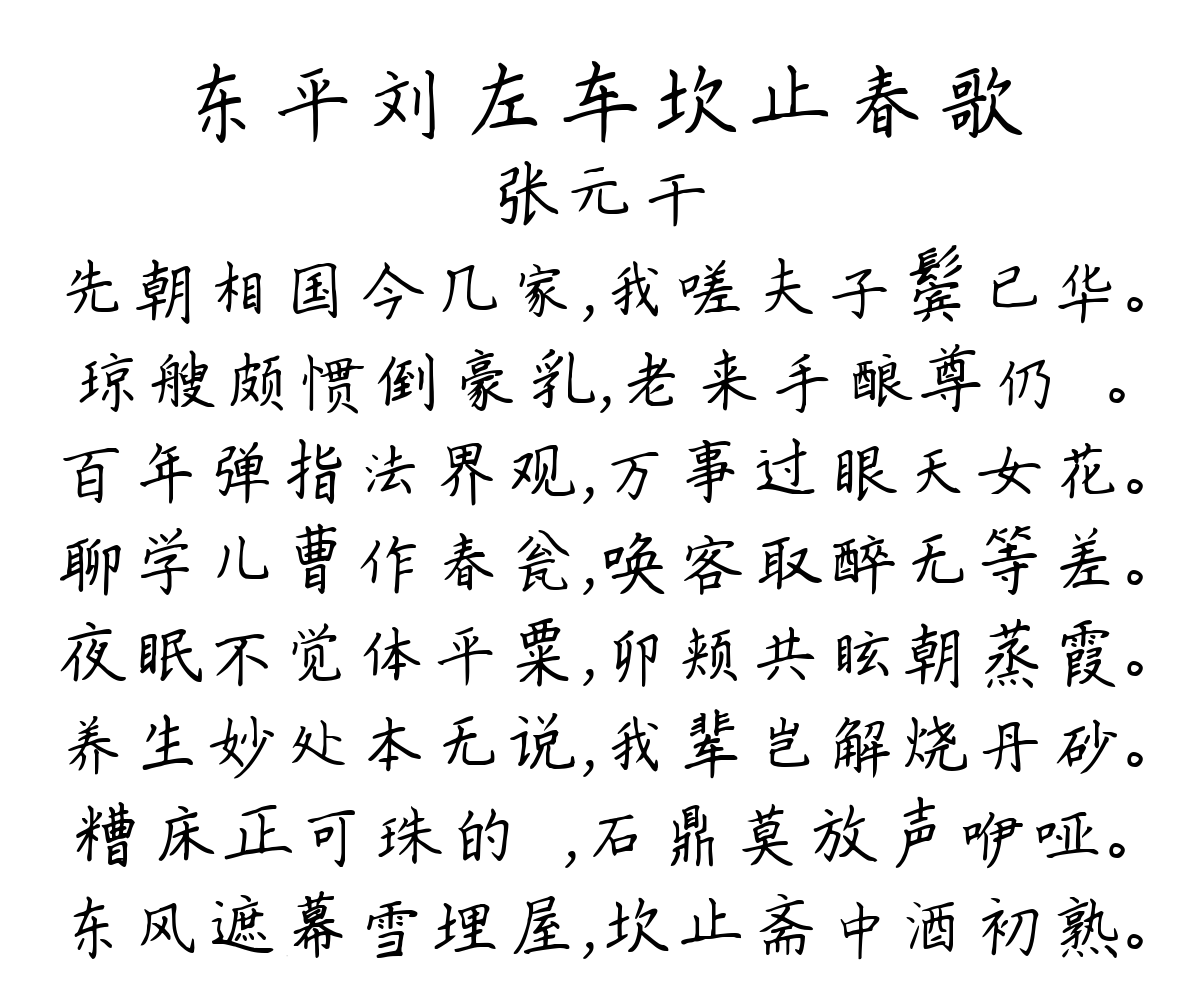 东平刘左车坎止春歌
张元干
先朝相国今几家,我嗟夫子鬓已华。
琼艘颇惯倒豪乳,老来手酿尊仍 。
百年弹指法界观,万事过眼天女花。
聊学儿曹作春瓮,唤客取醉无等差。
夜眠不觉体平粟,卯颊共眩朝蒸霞。
养生妙处本无说,我辈岂解烧丹砂。
糟床正可珠的 ,石鼎莫放声咿哑。
东风遮幕雪埋屋,坎止斋中酒初熟。